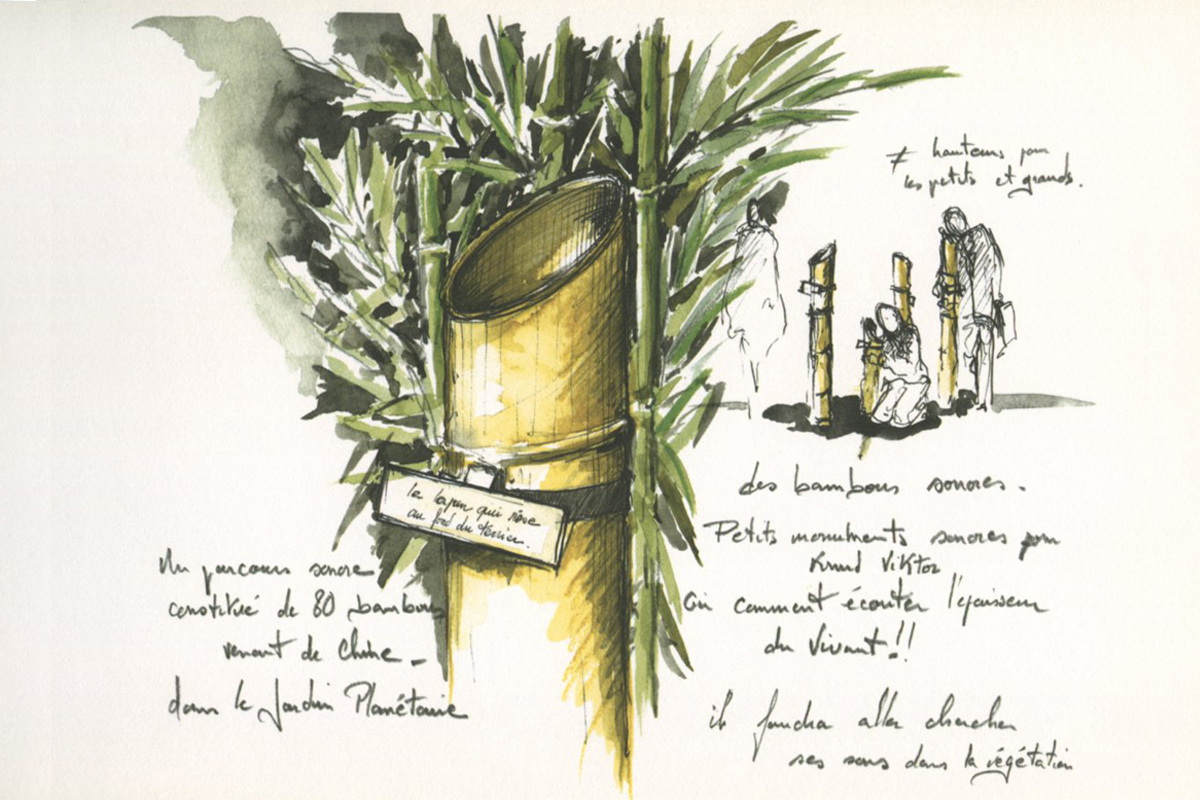 ≠ hauteurs pour
les petits et grands.
le lapin qui rêve
au fond du terrier.
des bambous sonores.
Petits monuments sonores pour
Knud Viktor
Ou comment écouter l'épaisseur
du Vivant!!
il faudra aller chercher
ses sons dans la végétation
Un parcours sonore
constitué de 80 bambous
venant de Chine -
dans le Jardin Planétaire